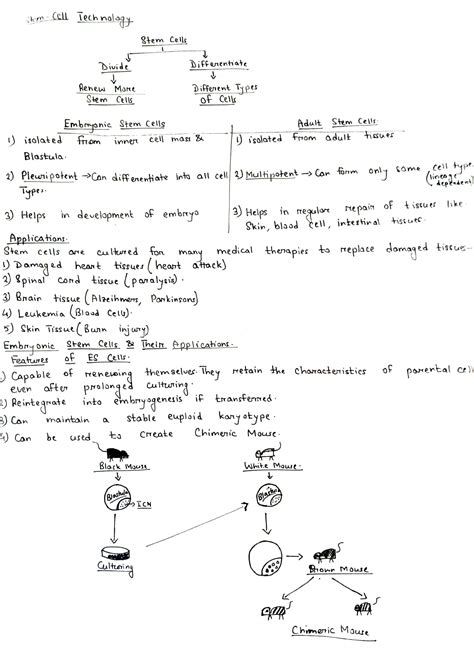 Stem-Cell Technology
Stem Cells
Divide Differentiate
Renew More Different Types
Stem Cells of Cells
Embryonic Stem Cells
1) isolated from inner cell mass &
Blastula.
2) Pleuripotent → Can differentiate into all cell
Types.
3) Helps in development of embryo
Adult Stem Cells.
1) isolated from adult tissues
2) Multipotent → Can form only some cell type.
(lineage dependent)
3) Helps in regular repair of tissues like
Skin, blood cell, intestinal tissues.
Applications.
Stem cells are cultured for many medical therapies to replace damaged tissue.
1) Damaged heart tissues (heart attack)
2) Spinal cord tissue (paralysis).
3) Brain tissue (Alzeihmers, Parkinsons)
4) Leukemia (Blood Cells).
5) Skin Tissue (Burn injury)
Embryonic Stem Cells & Their Applications.
Features of ES Cells.
1) Capable of renewing themselves. They retain the characteristics of parental cell
even after prolonged culturing.
2) Reintegrate into embryogenesis if transferred.
3) Can maintain a stable euploid karyotype.
4) Can be used to create Chimeric Mouse.
Black Mouse White Mouse.
Blastula Blastula
ICM
Culturing
Brown Mouse
Chimeric Mouse